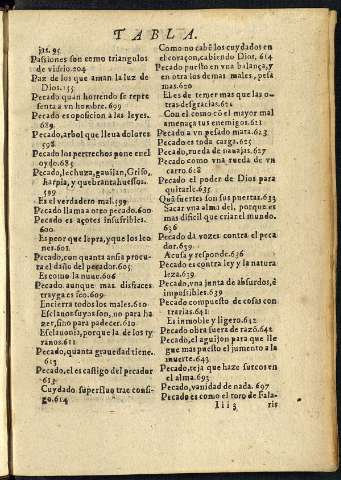 TABLA.
jas. 95
Passiones son como triangulos
de vidrio. 204
Paz de los que aman la luz de
Dios. 155
Pecado quan horrendo se repre
senta a vn hombre. 699
Pecado es oposicion a las leyes.
689.
Pecado, arbol que lleua dolores
598
Pecado los pertrechos pone en el
oydo. 685
Pecado, lechuza, gauilan, Grifo,
harpia, y quebrantahuessos.
599
Es el verdadero mal. 599
Pecado llama a otro pecado. 600
Pecado es açotes insufribles.
600
Es peor que sierpe, y que los leo
nes. 601.
Pecado, con quanta ansia procu-
ra el daño del pecador. 605
Es como la nuue. 606
Pecado aunque mas disfraces
trayga es feo. 609
Encierra todos los males. 610
Esclauo suyo son, no para ha
zer, sino para padecer. 610
Esclauonia, porque la de los ty
ranos. 611
Pecado, quanta grauedad tiene.
613
Pecado, el es castigo del pecador
613
Cuydado superfluo trae consi-
go. 614
Como no cabē los cuydados en
el coraçon, cabiendo Dios. 614
Pecado puesto en vna balança, y
en otra los demas males, pesa
mas. 620
El es de temer mas que las o-
tras desgracias. 621
Con el como cō el mayor mal
amenaça tus enemigos. 621
Pecado a vn pesado mata. 623
Pecado es toda carga. 625
Pecado, rueda de nauajas. 627
Pecado como vna rueda de vn
carro. 628
Pecado el poder de Dios para
quitarle. 635
Quā fuertes son sus puertas. 633
Sacar vna alma del, porque es
mas dificil que criar el mundo.
636
Pecado dà vozes contra el peca
dor. 639
Acusa y responde. 636
Pecado es contra ley y la natura
leza. 639
Pecado, vna junta de absurdos, è
impossibles. 639
Pecado compuesto de cosas con
trarias. 641
Es inmoble y ligero. 642
Pecado obra fuera de razō. 642
Pecado, el aguijon para que lle
gue mas presto el jumento a la
muerte. 643
Pecado, reja que haze surcos en
el alma. 693
Pecado, vanidad de nada. 697
Pecado es como el toro de Fala-
Iii 3 ris